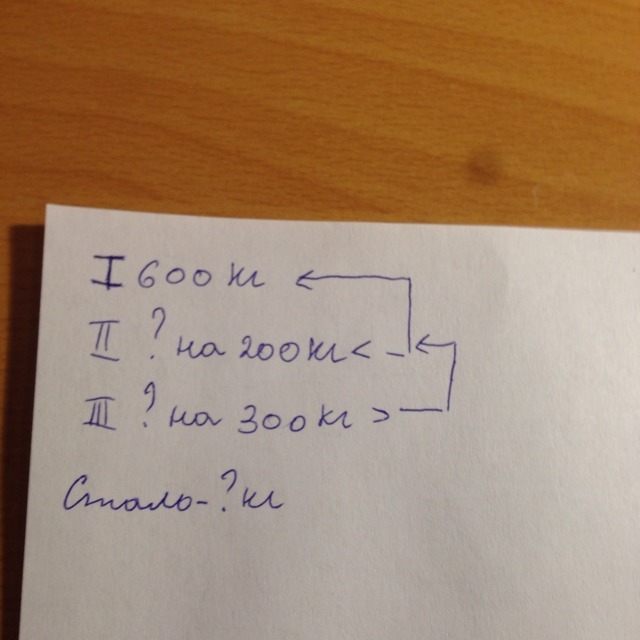 I 600 кг
II ? на 200 кг <
III ? на 300 кг >
Стало - ? кг